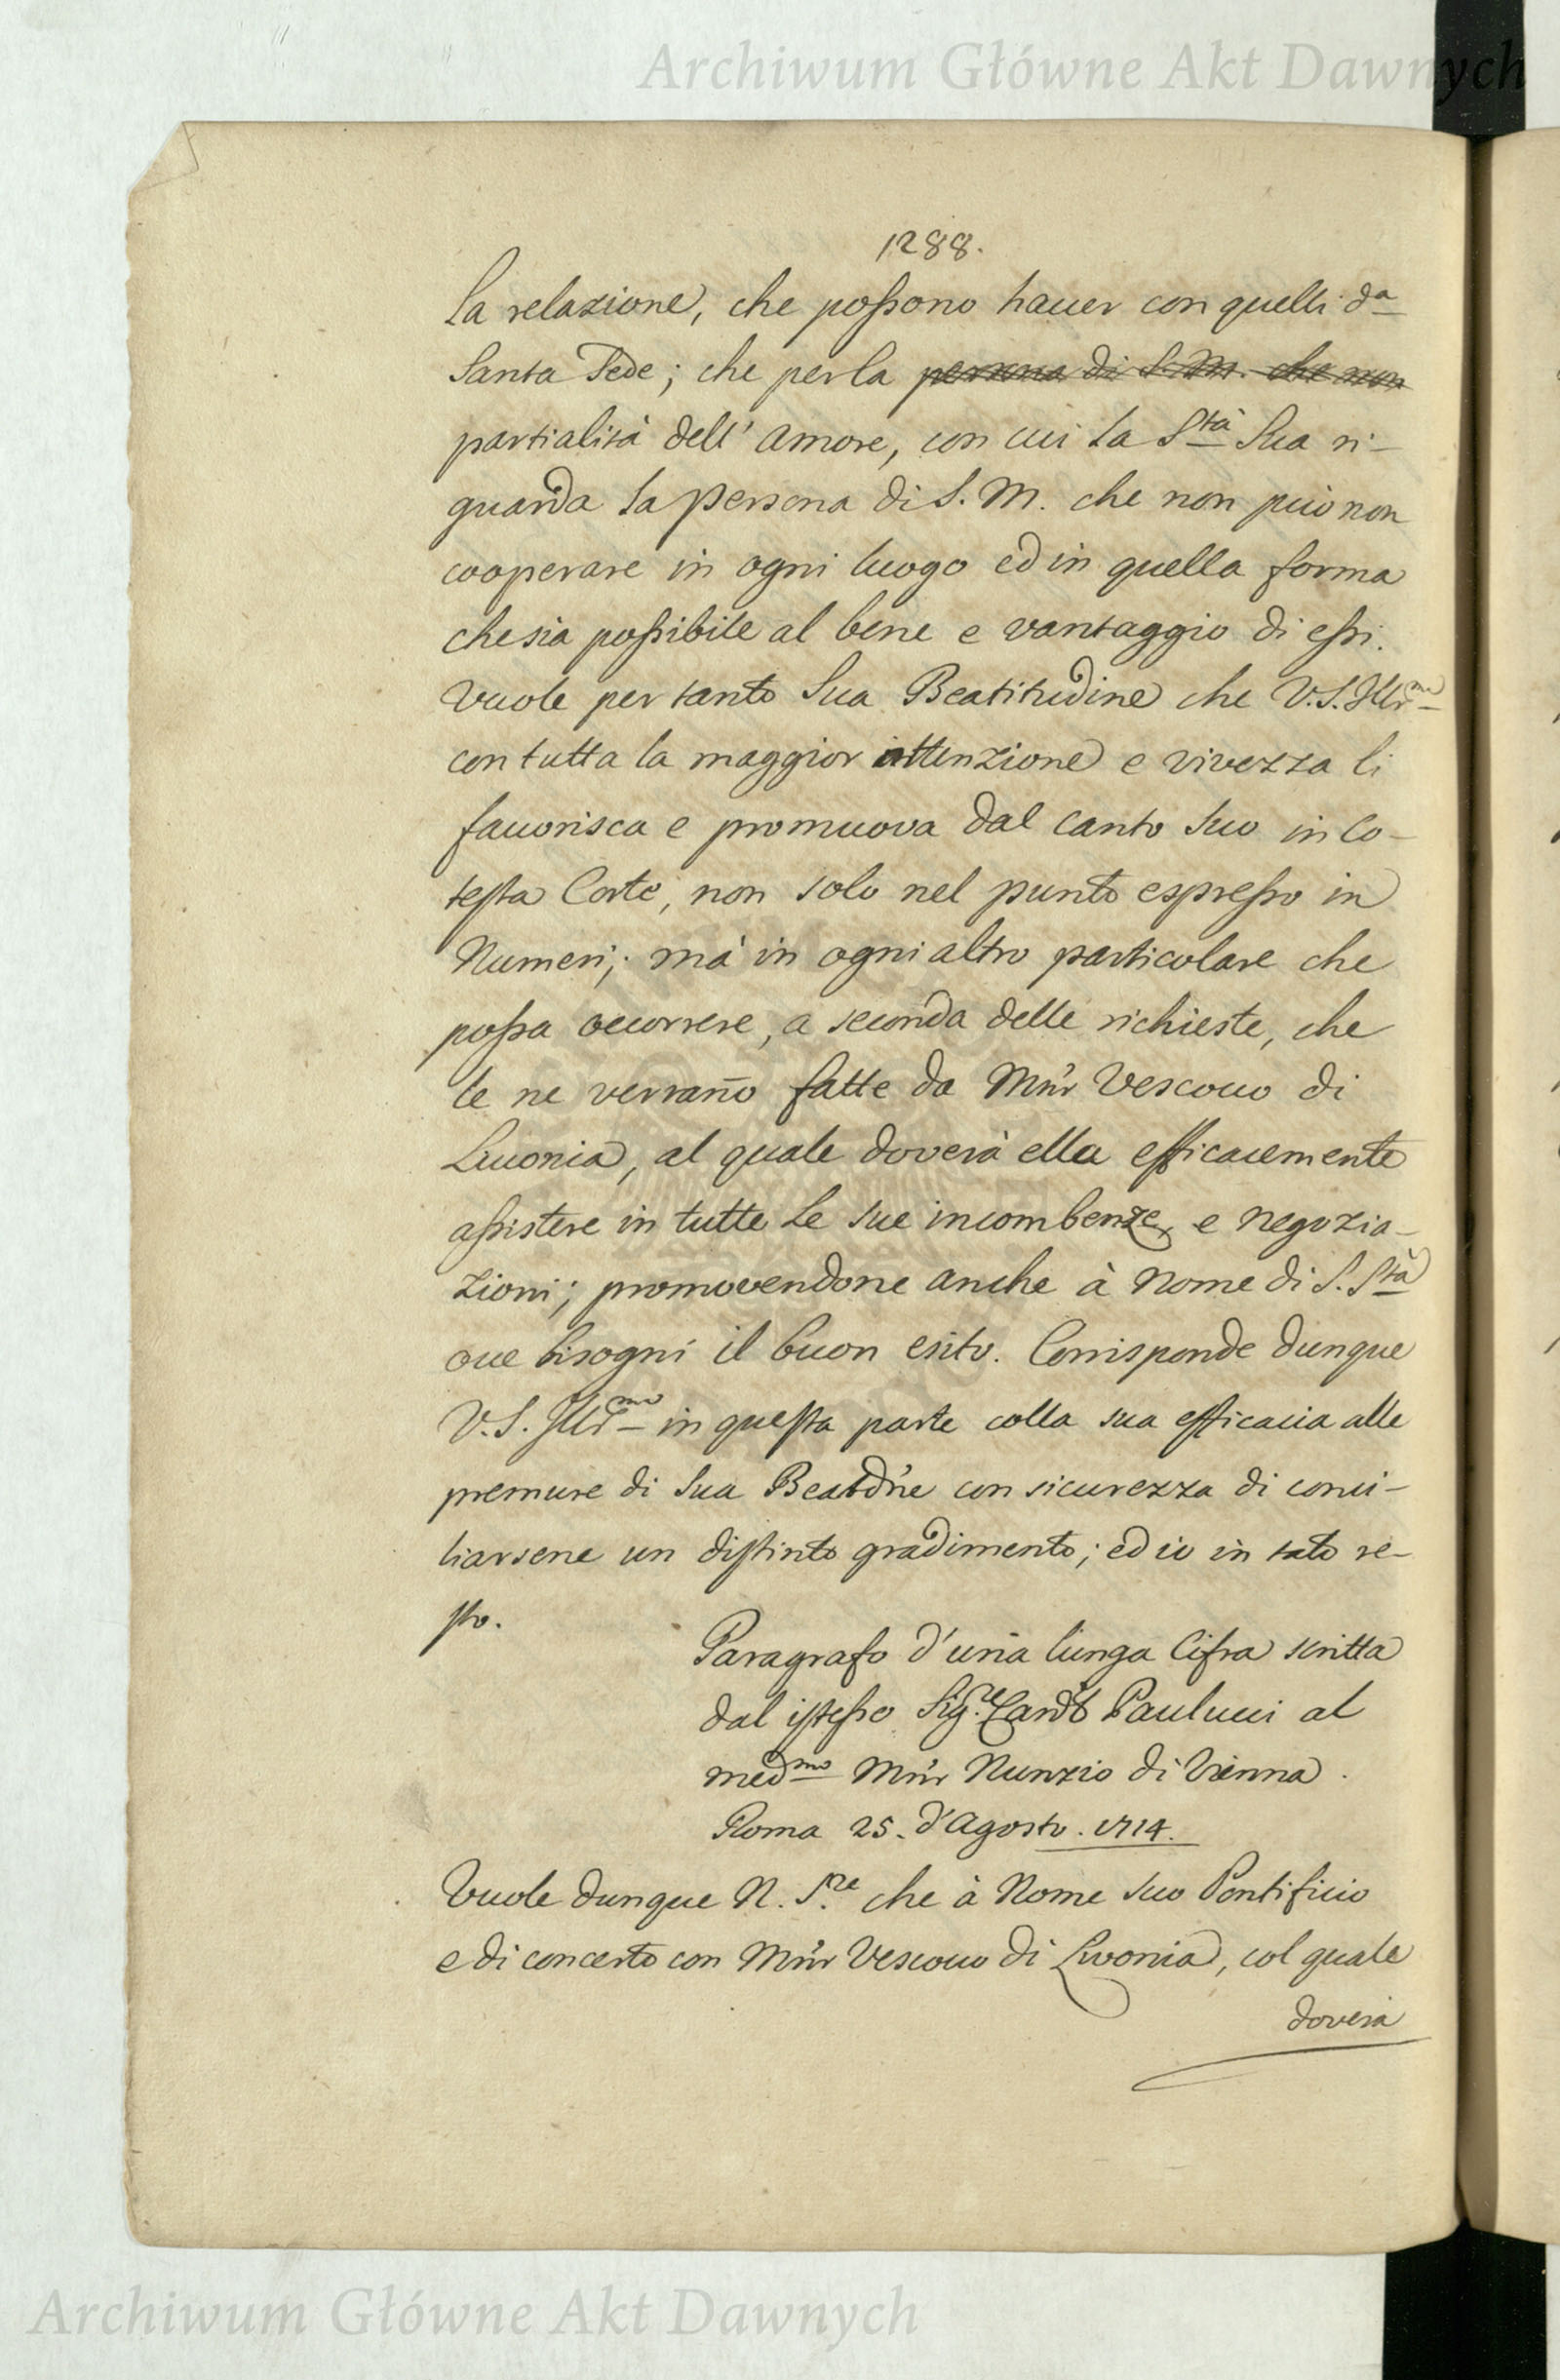 Archiwum Główne Akt Dawnych
1288.
la relazione, che possono hauer con quelli da
Santa Sede; che per la persona di S. M. che non
partialità dell' amore, con cui la Stà Sua ri-
guarda la persona di S. M. che non può non
cooperare in ogni luogo ed in quella forma
che sia possibile al bene e vantaggio di essi.
Vuole per tanto Sua Beatitudine che V. S. Illma
con tutta la maggior attenzione e vivezza li
fauorisca e promuova dal canto suo in co-
testa Corte, non solo nel punto espresso in
Numeri; mà in ogni altro particolare che
possa occorrere, a seconda delle richieste, che
le ne verrano fatte da Mnr Vescouo di
Liuonia, al quale doverà ella efficacemente
assistere in tutte le sue incombenze, e negozia-
zioni; promovendone anche à nome di S. Stà
oue bisogni il buon esito. Corrisponde dunque
V. S. Illma in questa parte colla sua efficacia alle
premure di Sua Beatdne con sicurezza di conci-
liarsene un distinto gradimento; ed io in tato re-
sto.
Paragrafo d'una lunga Cifra scritta
dal istesso Sig.re Cardl Paulucci al
medmo Mnr Nunzio di Vienna.
Roma 25. d'Agosto. 1714.
Vuole dunque N. S.re che à Nome suo Pontificio
e di concerto con Mnr Vescouo di Livonia, col quale
doverà
Archiwum Główne Akt Dawnych